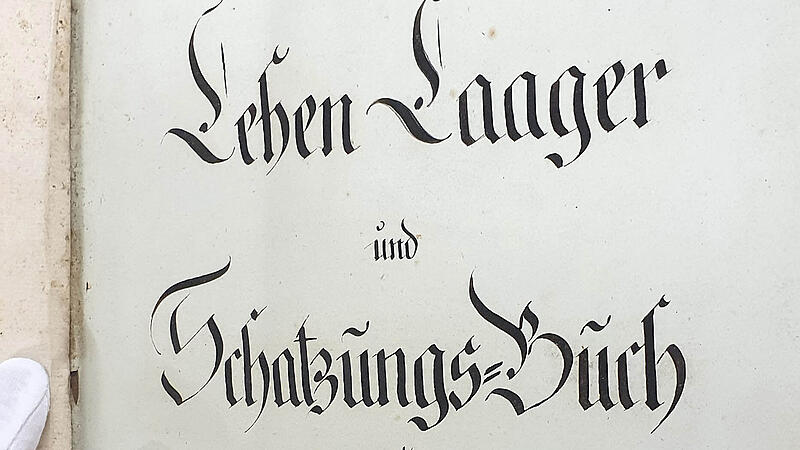 Lehen Laager
und
Schatzungs=Buch